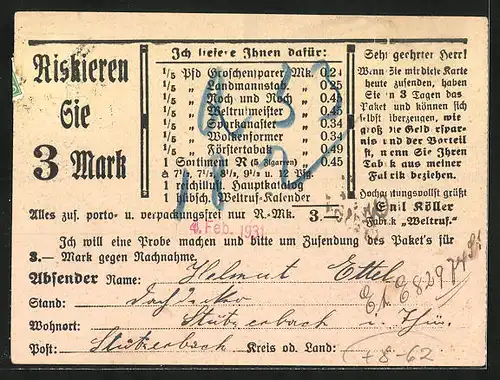 Riskieren
Sie
3 Mark
Ich liefere Ihnen dafür:
1/5 Pfd Groschensparer Mk. 0.24
1/5 " Landmannstab. " 0.25
1/5 " Noch und Noch " 0.40
1/5 " Weltrufmeister " 0.45
1/5 " " 0.34
1/5 " " 0.34
1/5 " Förstertabak " 0.49
1 Sortiment Zigarren " 0.45
à 7½, 7½, 8½, 9½ u. 12 Pfg.
1 reichillust. Hauptkatalog
1 hübsch. Weltruf-Kalender
Sehr geehrter Herr!
Wenn Sie mir diese Karte
heute zusenden, haben
Sie in 3 Tagen das
Paket und können sich
selbst überzeugen, wie
groß die Geldersparnis
und der Vorteil
ist, wenn Sie Ihren
Tabak aus meiner
Fabrik beziehen.
Hochachtungsvollst grüßt
Emil Köller
Fabrik „Weltruf."
Alles zus. porto- u. verpackungsfrei nur R.-Mk. 3.—
4. Feb. 1931
Ich will eine Probe machen und bitte um Zusendung des Paket's für
3.— Mark gegen Nachnahme.
Absender Name: Helmut Ettel
Stand: Dachdecker
Wohnort: Stützerbach i. Thür.
Post: Stützerbach Kreis od. Land:
+8-62